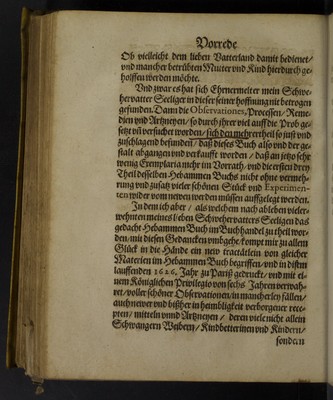 Vorrede
Ob vielleicht dem lieben Vatterland damit bedienet/
vnd mancher betrübten Mutter vnd Kind hierdurch ge-
holffen werden möchte.
Vnd zwar es hat sich Ehrenermelter mein Schwe-
hervatter Seeliger in dieser seiner hoffnung nit betrogen
gefunden. Dann die Observationes, Processen/ Reme-
dien vnd Artzneyen/ so durch ihrer viel auff die Prob ge-
setzt vñ versucht worden/ sich den mehrertheil so just vnd
zuschlagend befunden/ daß dieses Buch also vnd der ge-
stalt abgangen vnd verkaufft worden/ daß an jetzo sehr
wenig Exemplaria mehr im Vorrath/ vnd die ersten drey
Theil desselben Hebammen Buchs nicht ohne vermeh-
rung vnd zusatz vieler schönen Stück vnd Experimen-
ten wider vom newen werden müssen auffgelegt werden.
In dem ich aber/ als welchem nach ableben vieler-
wehnten meines lieben Schwehervatters Seeligen das
gedacht Hebammen Buch im Buchhandel zu theil wor-
den/ mit diesen Gedancken vmbgehe/ kompt mir zu allem
Glück in die Hände ein new tractätlein von gleicher
Materien im Hebammen Buch begriffen/ vnd in disem
lauffenden 1626. Jahr zu Pariß gedruckt/ vnd mit ei-
nem Königlichen Privilegio von sechs Jahren verwah-
ret/ voller schöner Observationen/ in mancherley fällen/
auch newer vnd bißher in heimbligkeit verborgener rece-
pten/ mitteln vnnd Artzneyen/ deren viele nicht allein
Schwangern Weibern/ Kindbetterinen vnd Kindern/
sondern